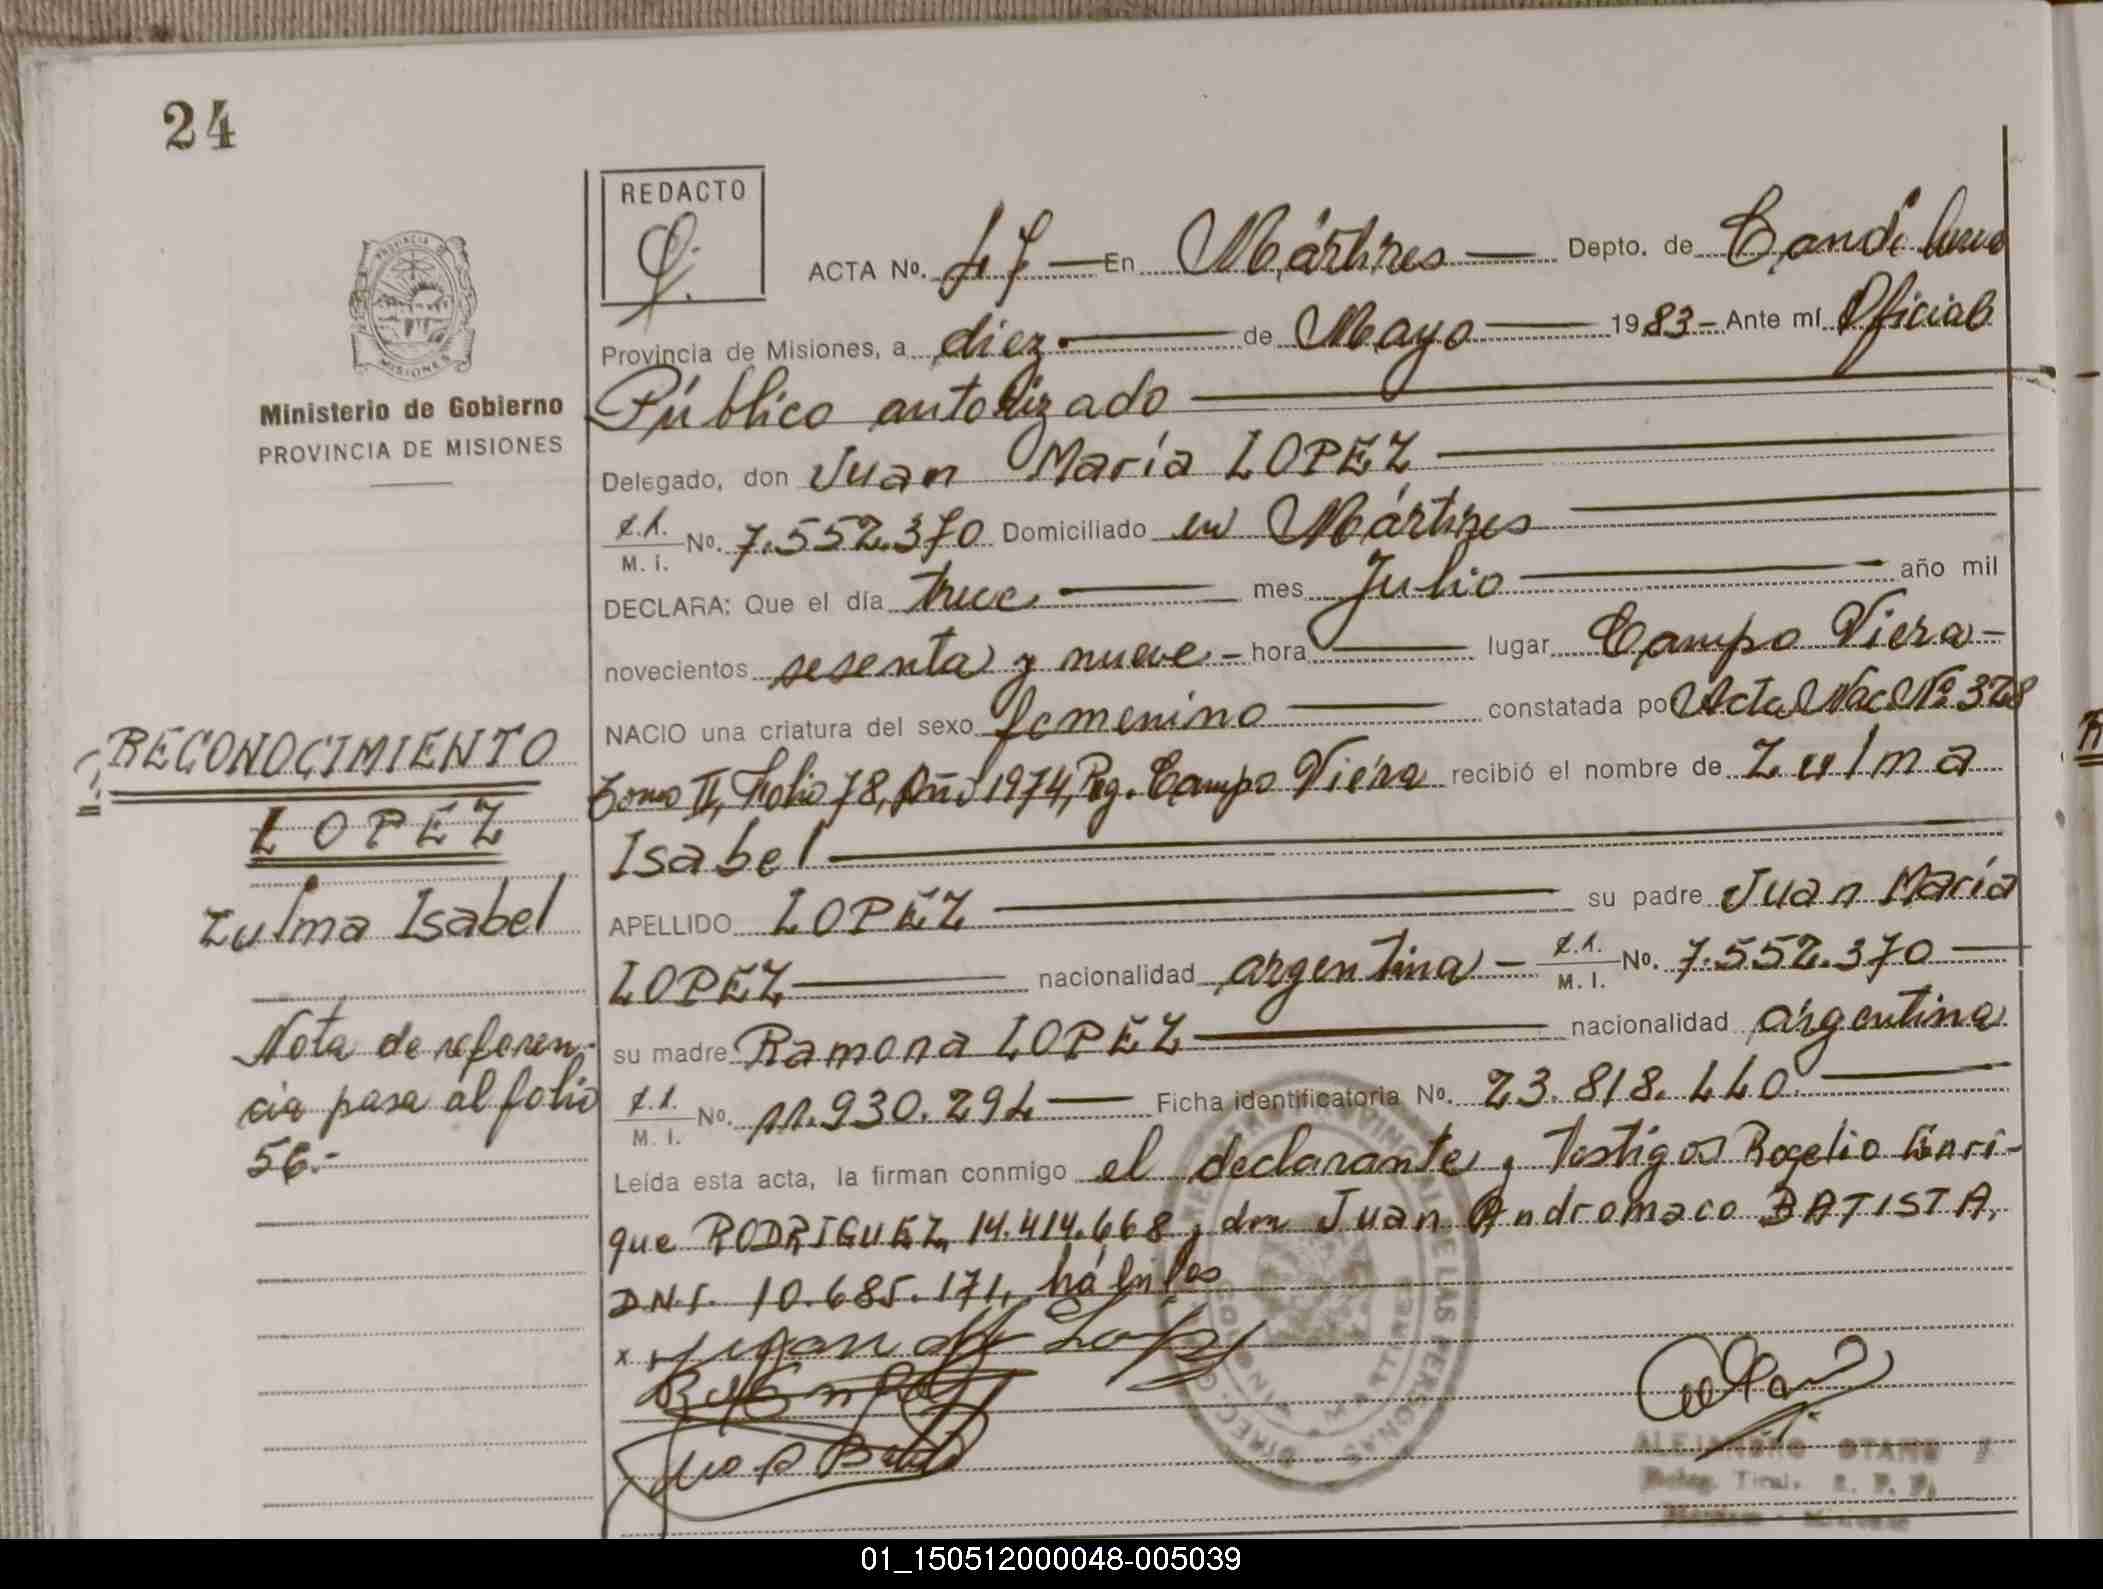 24
REDACTO
ACTA No. 47 — En Mártires — Depto. de Candelaria
Provincia de Misiones, a diez — de Mayo — 1983 - Ante mí Oficial
Público autorizado
Delegado, don Juan María LOPEZ
L.1. M. I. No. 7.552.370 Domiciliado en Mártires
DECLARA: Que el día trece — mes Julio — año mil
novecientos sesenta y nueve - hora — lugar Campo Viera -
NACIO una criatura del sexo femenino — constatada por Acta Nac. Nº 328
Tomo II, Folio 78, Año 1974, Reg. Campo Viera recibió el nombre de Zulma
Isabel
APELLIDO LOPEZ — su padre Juan María
LOPEZ — nacionalidad argentina - M. I. No. 7.552.370 —
su madre Ramona LOPEZ — nacionalidad argentina
M. I. No. 11.930.294 — Ficha identificatoria No. 23.818.440 —
Leída esta acta, la firman conmigo el declarante y testigos Rogelio Enri-
que RODRIGUEZ, 14.414.668 y don Juan Andromaco BATISTA,
D.N.I. 10.685.171, hábiles
x Juan M Lopez
ALEJANDRO OTAÑO
PROVINCIA DE MISIONES
Ministerio de Gobierno
PROVINCIA DE MISIONES
RECONOCIMIENTO
LOPEZ
Zulma Isabel
Nota de referen-
cia pasa al folio
56.-
REGISTRO PROVINCIAL DE LAS PERSONAS
MARTIRES
01_150512000048-005039